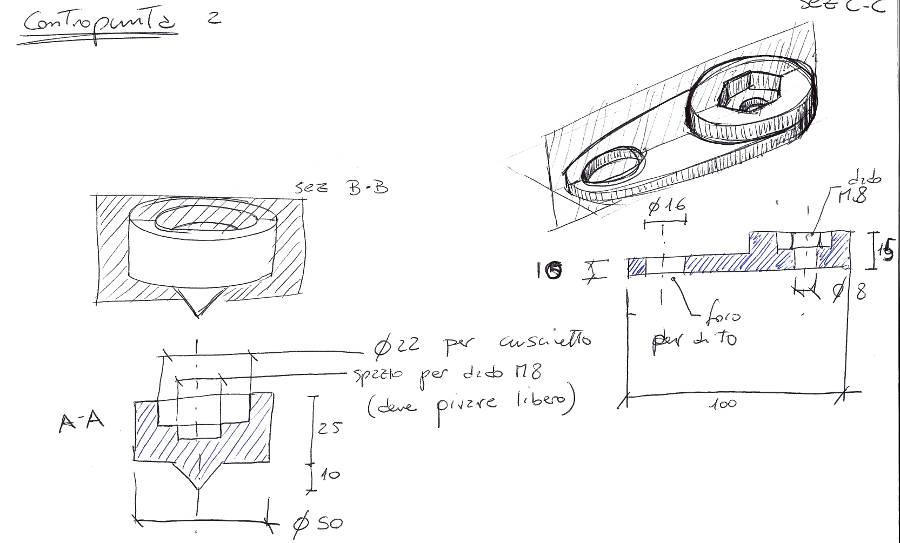 Contropunta 2
sez C-C
sez B-B
dado
M8
Ø16
10
15
Ø 8
foro
per dito
100
Ø22 per cuscinetto
spazio per dado M8
(deve girare libero)
A-A
25
10
Ø 50